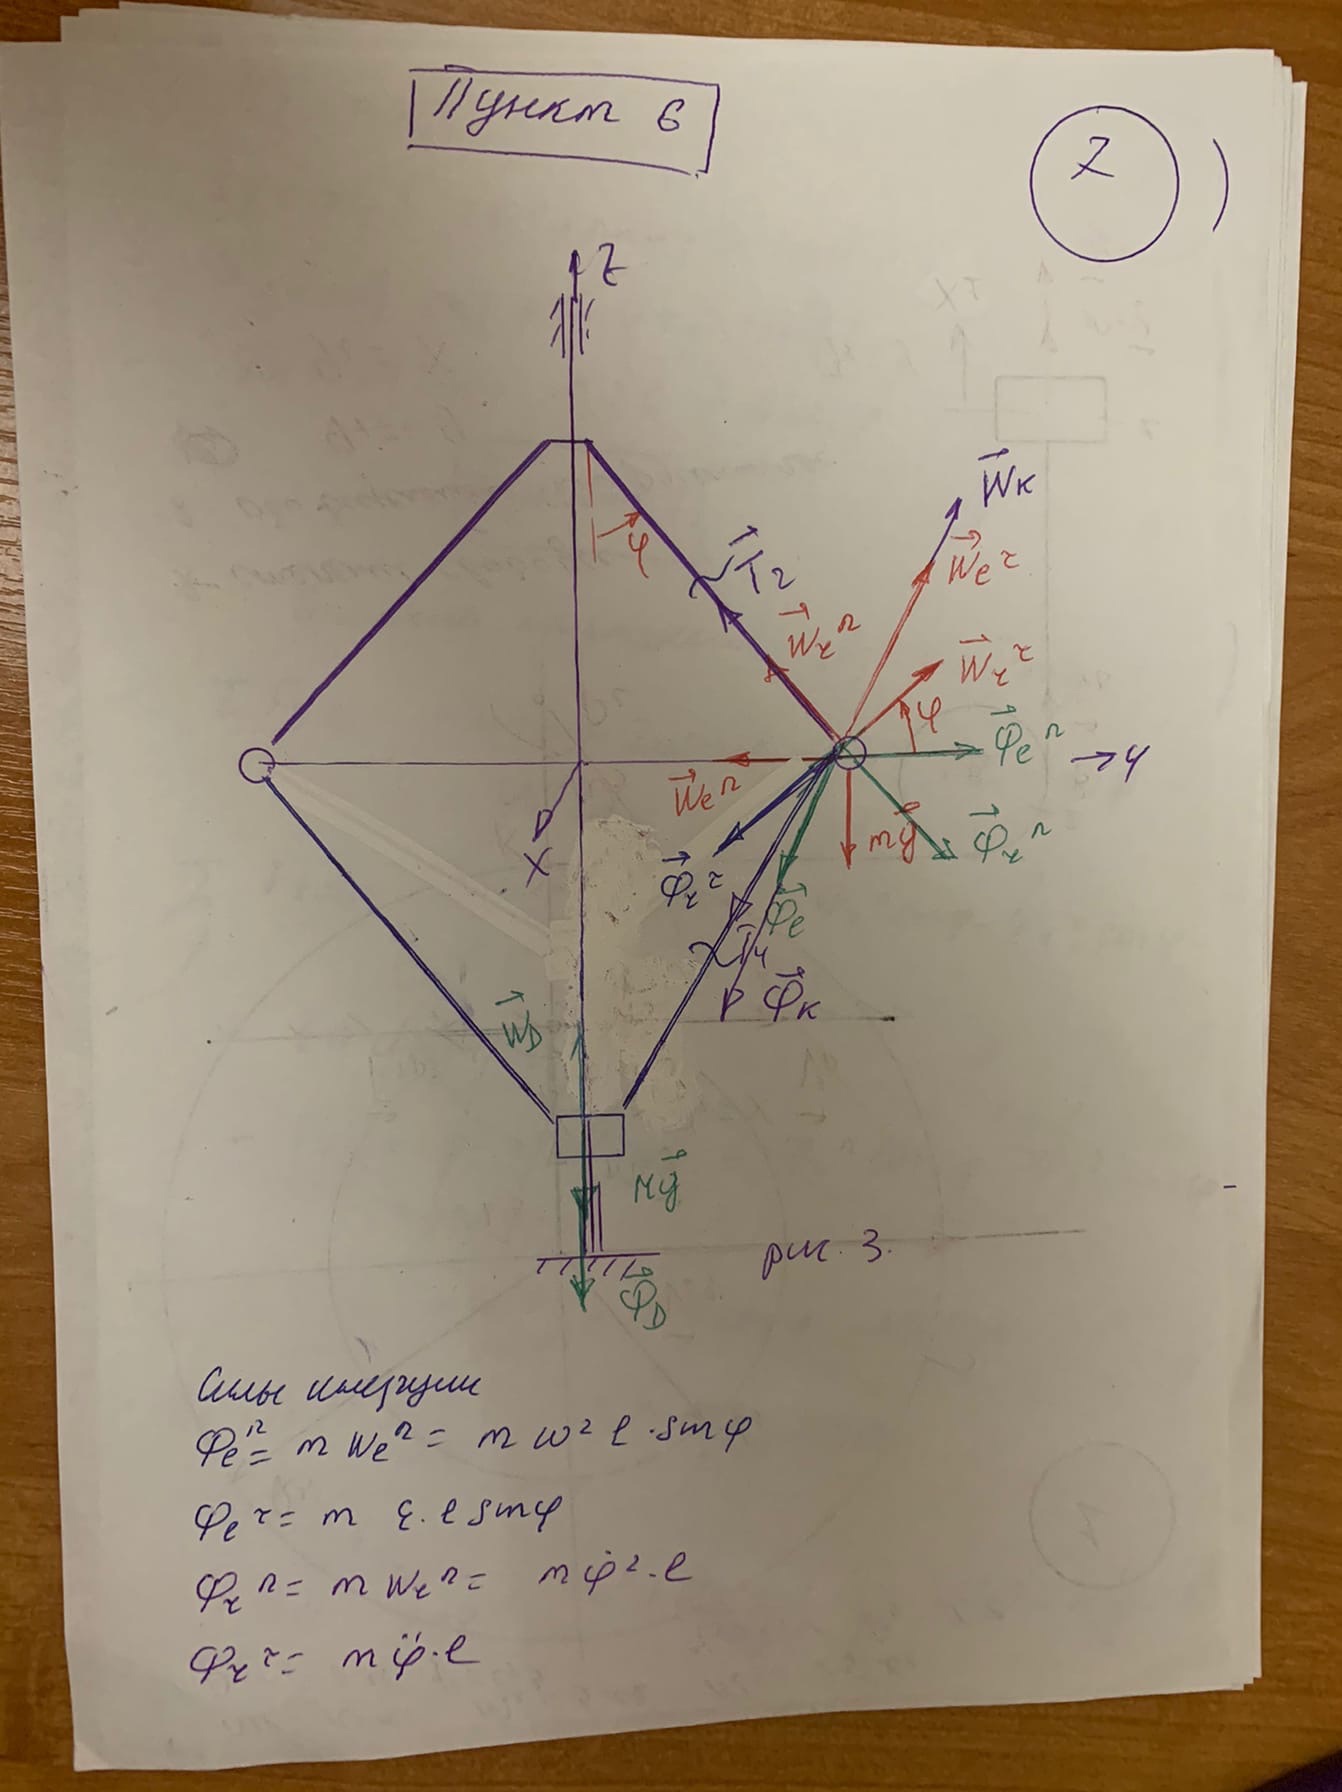 Пункт 6
2
)
Z
W⃗к
W⃗eᵗ
φ
T⃗2
W⃗rⁿ
W⃗rᵗ
φ
Φ⃗eⁿ
→y
W⃗eⁿ
mg⃗
Φ⃗rⁿ
X
Φ⃗rᵗ
Φ⃗e
T⃗4
Φ⃗к
W⃗D
Mg⃗
рис. 3.
Φ⃗D
Силы инерции
Φeⁿ = m Weⁿ = m ω² l · sin φ
Φeᵗ = m ε · l sin φ
Φrⁿ = m Wrⁿ = m φ̇² · l
Φrᵗ = m φ̈ · l